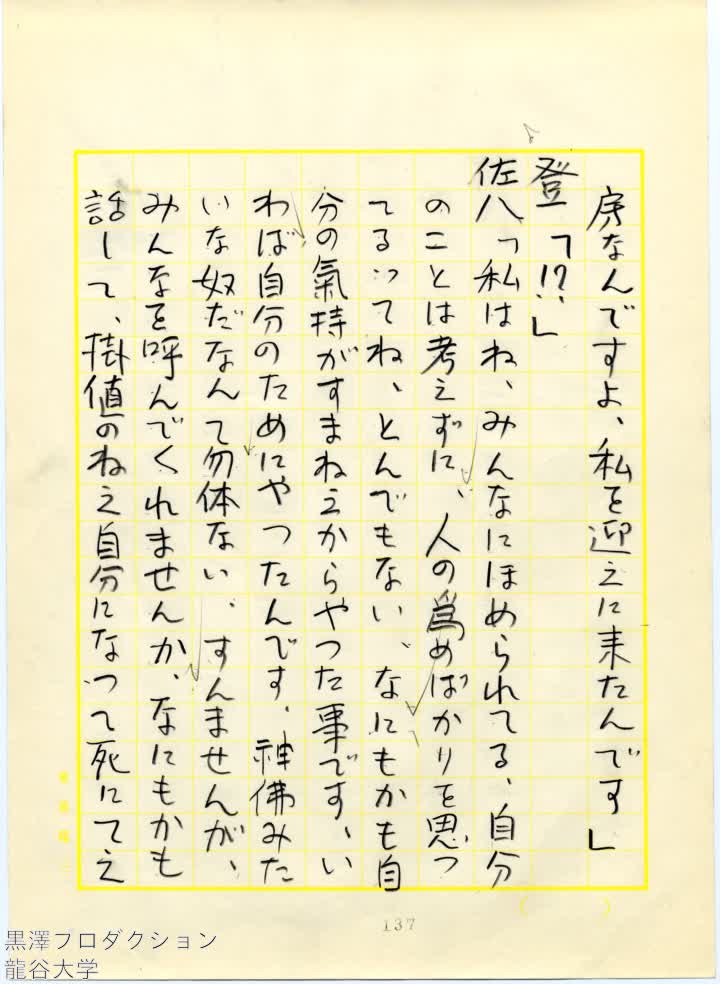 房なんですよ、私を迎えに来たんです」
登「⁉︎‥」
佐八「私はね、みんなにほめられてる、自分
のことは考えずに、人の爲めばかりを思つ
てるってね、とんでもない、なにもかも自
分の氣持がすまねえからやつた事です、い
わば自分のためにやつたんです、神佛みた
いな奴だなんて勿体ない、すんませんが、
みんなを呼んでくれませんか、なにもかも
話して、掛値のねえ自分になつて死にてえ
137
黒澤プロダクション
龍谷大学